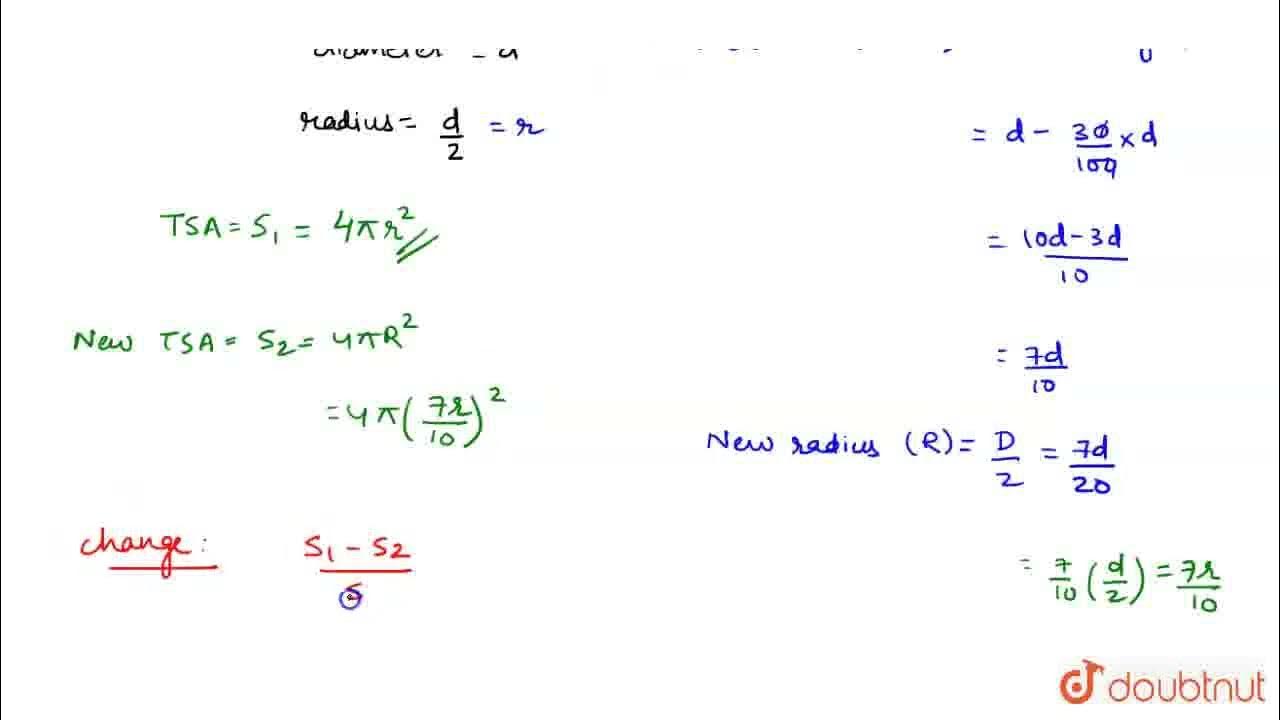 diameter = d
radius = d/2 = r
TSA = S₁ = 4πr²
New TSA = S₂ = 4πR²
= 4π(7r/10)²
change:
S₁ - S₂ / S
= d - 30/100 × d
= 10d - 3d / 10
= 7d/10
New radius (R) = D/2 = 7d/20
= 7/10 (d/2) = 7r/10
doubtnut